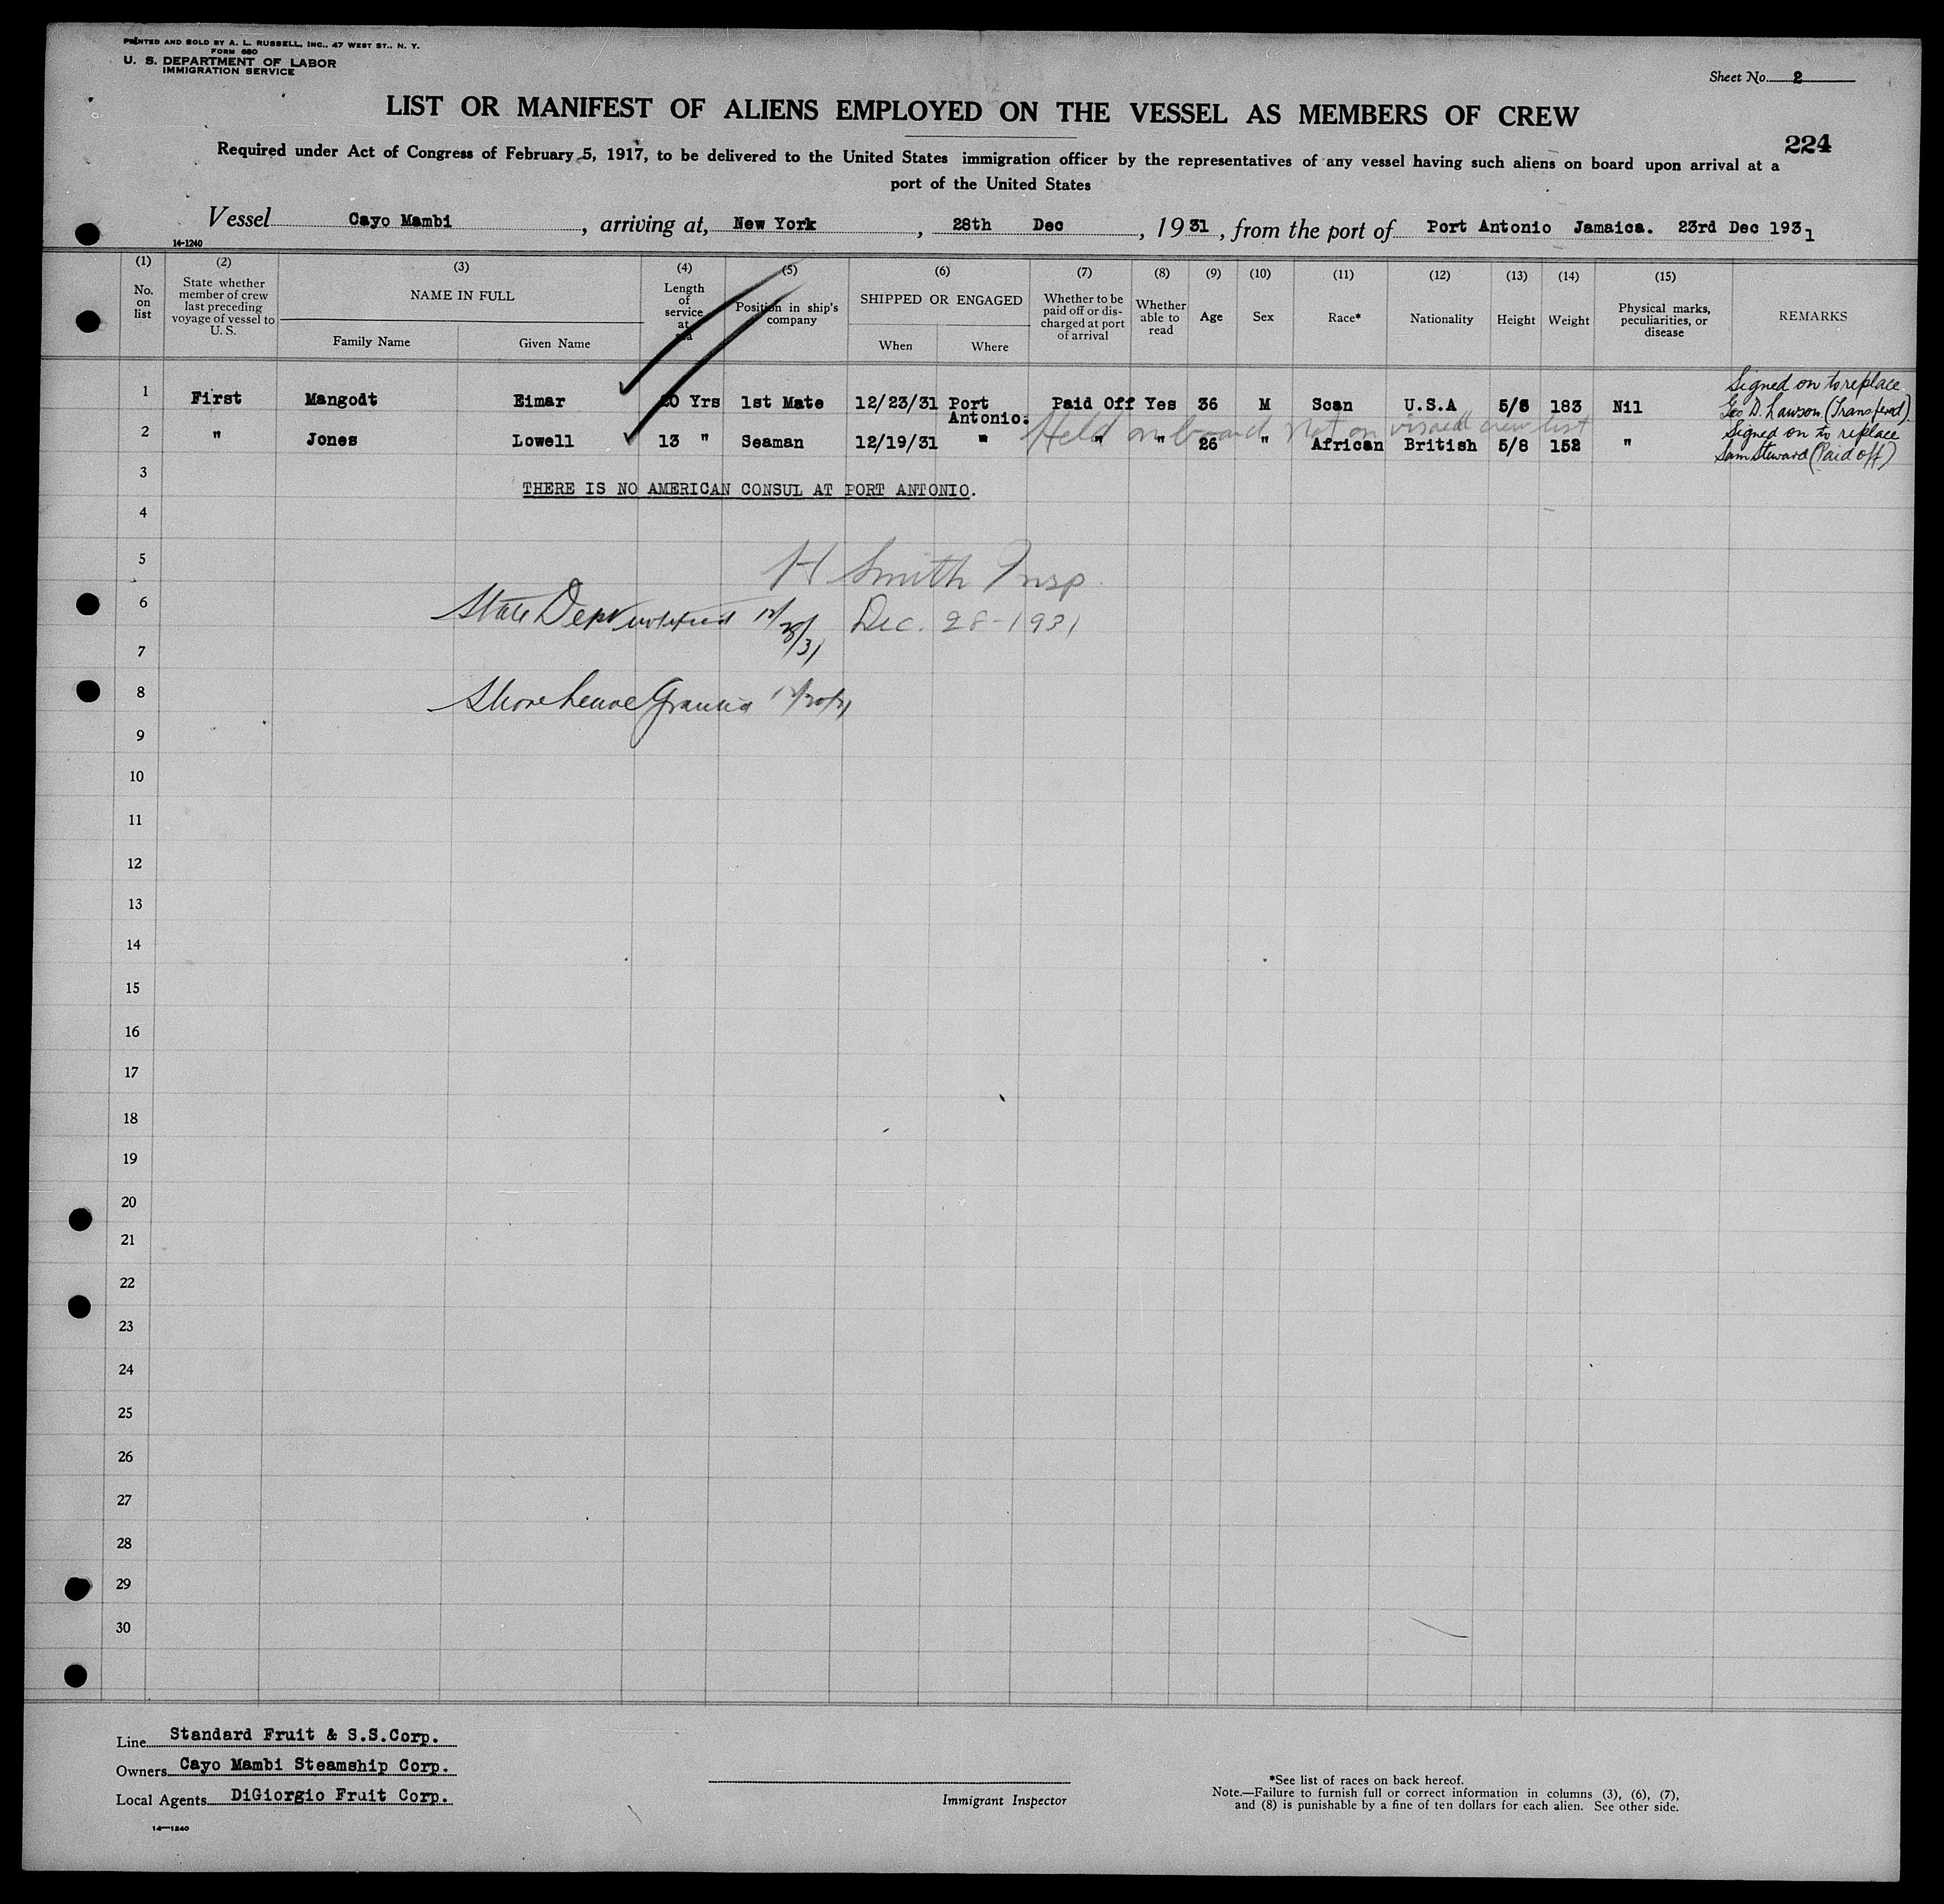 PRINTED AND SOLD BY A. L. RUSSELL, INC., 47 WEST ST., N. Y.
FORM 680
U. S. DEPARTMENT OF LABOR
IMMIGRATION SERVICE
Sheet No. 2
LIST OR MANIFEST OF ALIENS EMPLOYED ON THE VESSEL AS MEMBERS OF CREW
224
Required under Act of Congress of February 5, 1917, to be delivered to the United States immigration officer by the representatives of any vessel having such aliens on board upon arrival at a
port of the United States
Vessel Cayo Mambi, arriving at, New York, 28th Dec, 1931, from the port of Port Antonio Jamaica. 23rd Dec 1931
14-1240
(1) (2) (3) (4) (5) (6) (7) (8) (9) (10) (11) (12) (13) (14) (15)
No. on list
State whether member of crew last preceding voyage of vessel to U. S.
NAME IN FULL
Family Name Given Name
Length of service at
Position in ship's company
SHIPPED OR ENGAGED
When Where
Whether to be paid off or discharged at port of arrival
Whether able to read
Age Sex Race* Nationality Height Weight
Physical marks, peculiarities, or disease
REMARKS
1 First Mangodt Eimar 20 Yrs 1st Mate 12/23/31 Port Antonio. Paid Off Yes 36 M Scan U.S.A 5/8 183 Nil Signed on to replace Geo D. Lawson (Transfered)
Held on board not on visaed crew list
2 " Jones Lowell 13 " Seaman 12/19/31 " " " 26 " African British 5/8 152 " Signed on to replace Sam Steward (Paid off)
3
THERE IS NO AMERICAN CONSUL AT PORT ANTONIO.
4
5
H Smith Insp.
6
State Dept notified 12/28/31 Dec. 28-1931
7
8
Shore leave Granted 12/30/31
9
10
11
12
13
14
15
16
17
18
19
20
21
22
23
24
25
26
27
28
29
30
Line Standard Fruit & S.S.Corp.
Owners Cayo Mambi Steamship Corp.
Local Agents DiGiorgio Fruit Corp.
14-1240
Immigrant Inspector
*See list of races on back hereof.
Note.—Failure to furnish full or correct information in columns (3), (6), (7),
and (8) is punishable by a fine of ten dollars for each alien. See other side.